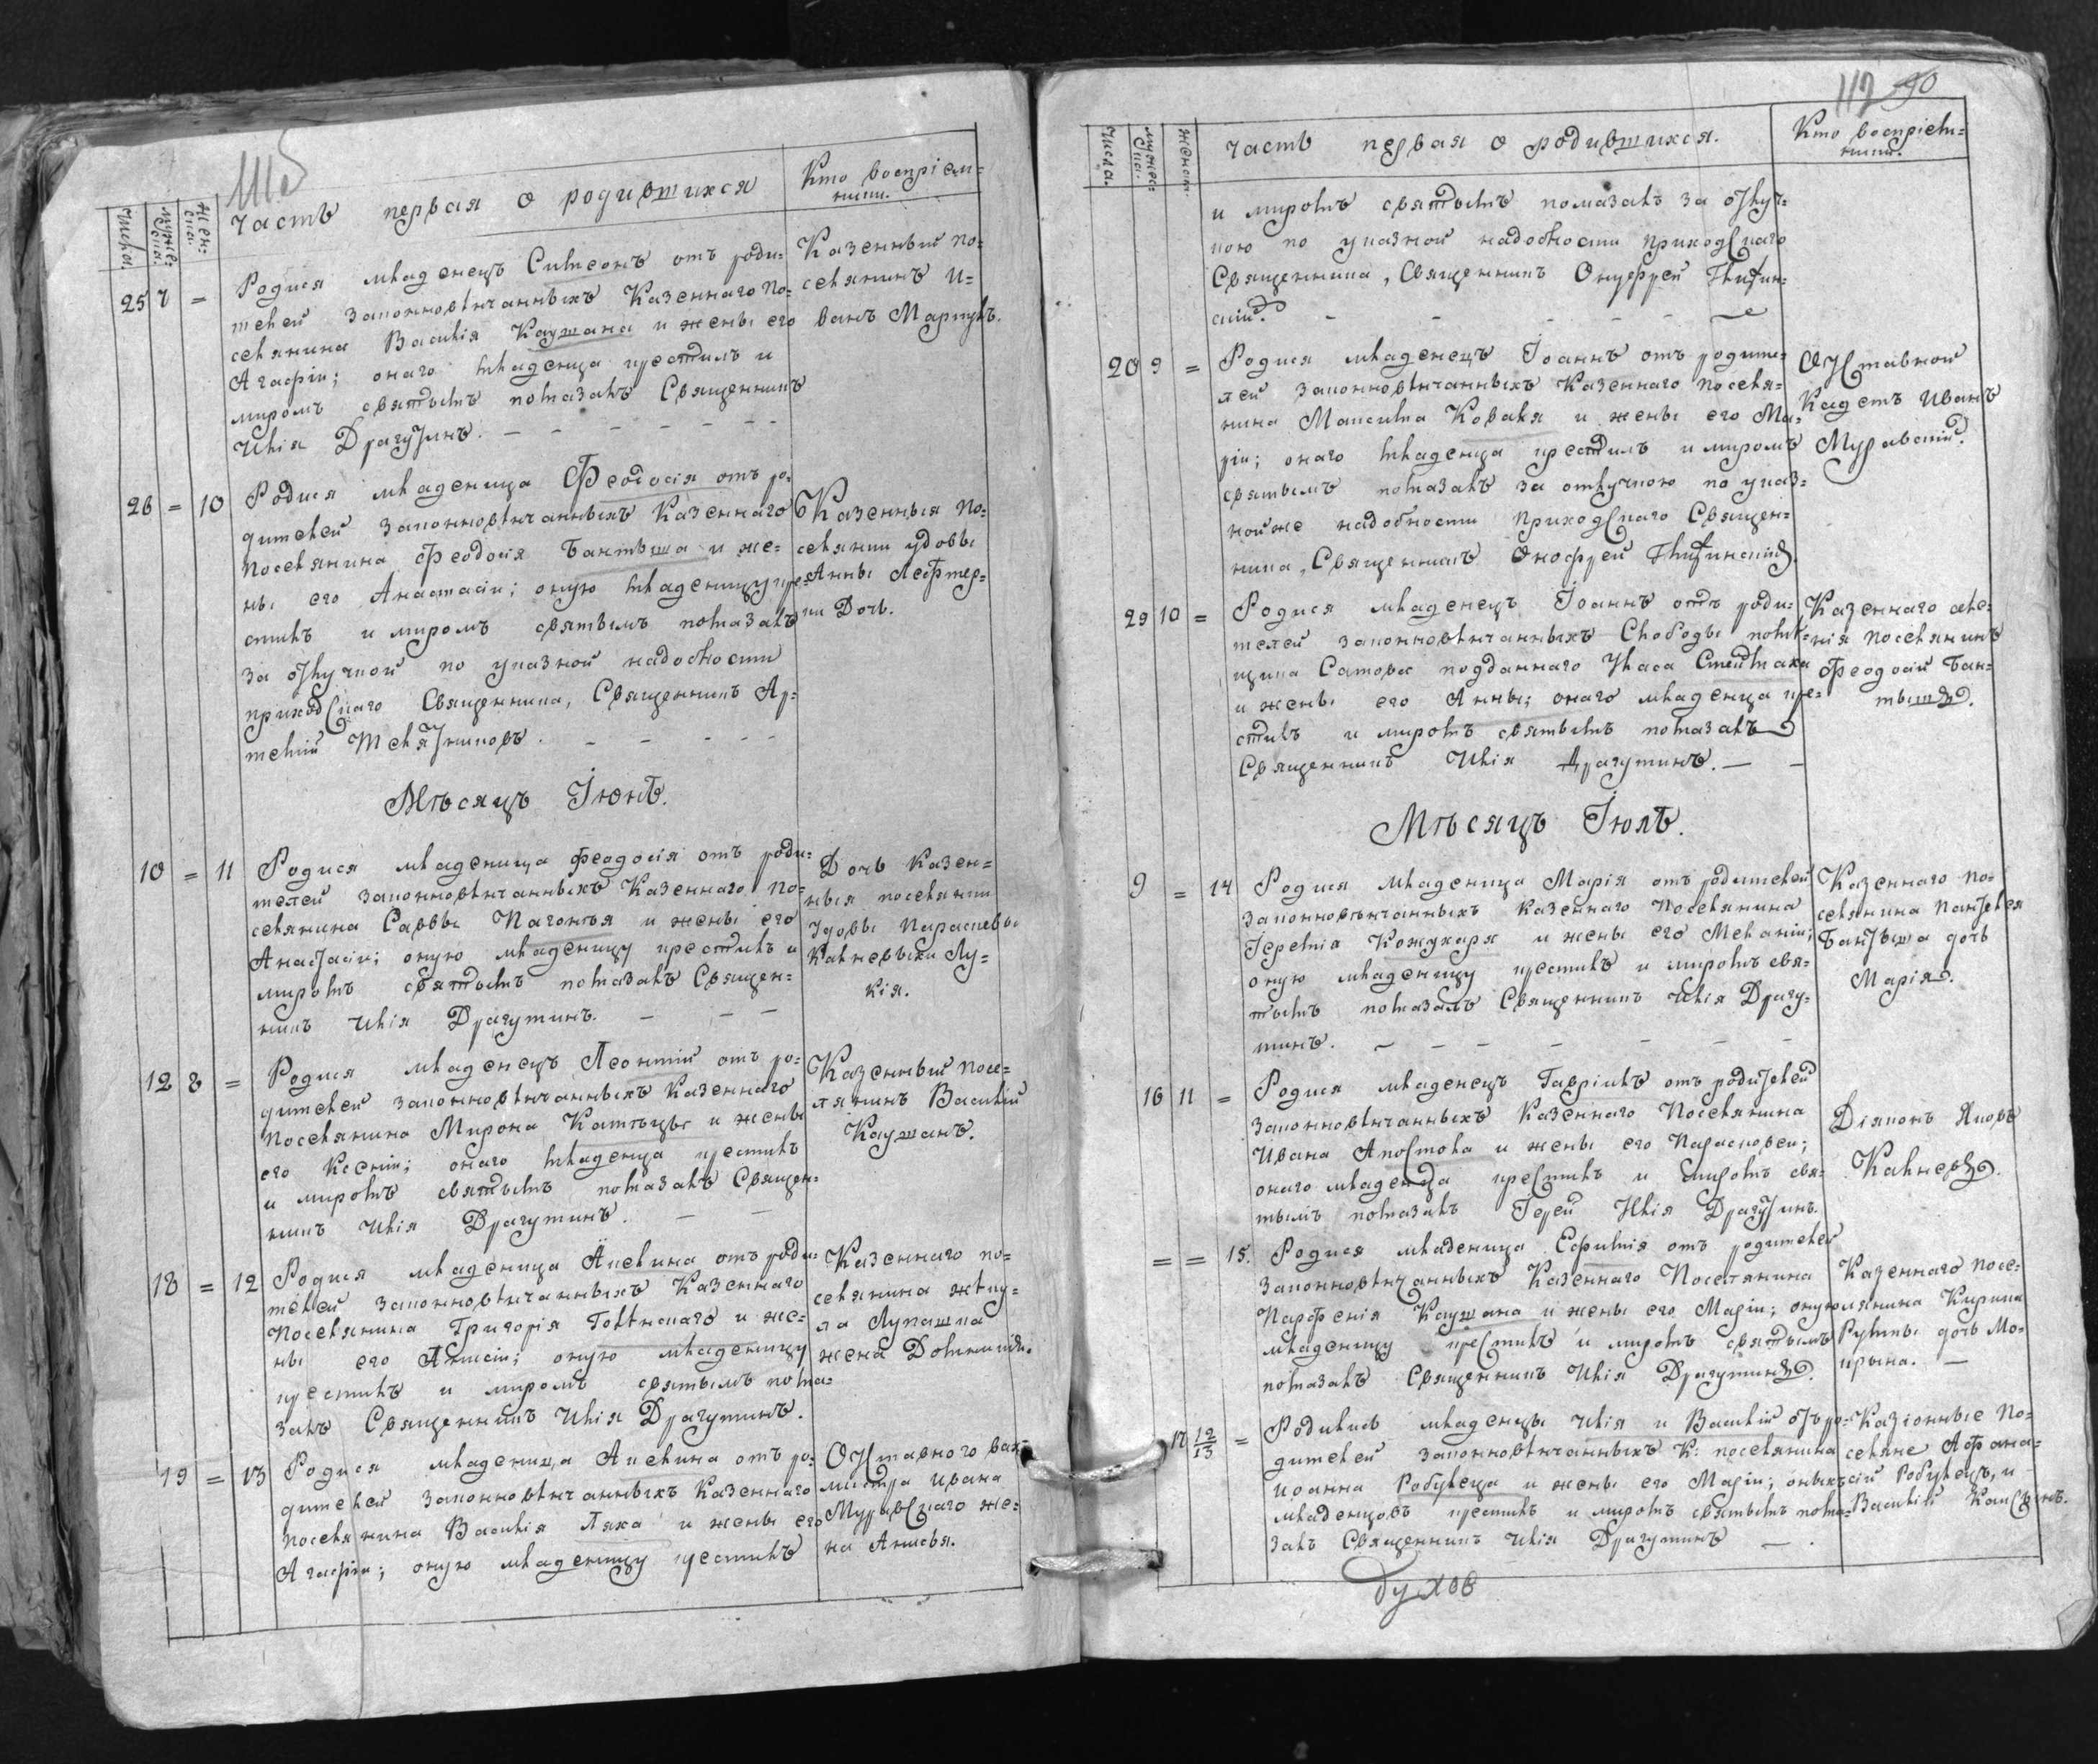 часть первая о родившихся
Кто воспріем-
ники.
Числа.
мужес-
ска.
Жен-
ска.
25 7 =
Родися младенецъ Симеонъ отъ роди-
телей законновѣнчанныхъ Казеннаго по-
селянина Василія Каушана и жены его
Агафіи; онаго младенца крестилъ и
миромъ святымъ помазалъ Священникъ
Илія Драгутинъ.
Казенный по-
селянинъ И-
ванъ
26 = 10
Родися младеница Феодосія отъ ро-
дителей законновѣнчанныхъ Казеннаго
Поселянина Феодосія Бантыша и же-
ны его Анастасіи; оную младеницу кре-
стилъ и миромъ святымъ помазалъ
за отлучкой по указной надобности
приходскаго Священника, Священникъ Ар-
темій
Казенныя по-
селянки удовы
Анны
ки Дочь.
Мѣсяцъ Іюнь.
10 = 11
Родися младеница Феодосія отъ роди-
телей законновѣнчанныхъ Казеннаго по-
селянина Саввы и жены его
Анастасіи; оную младеницу крестилъ и
миромъ святымъ помазалъ Священ-
никъ Илія Драгутинъ.
Дочь казен-
ныя поселянки
удовы Параскевы
Калневыхи Лу-
кія.
12 8 =
Родися младенецъ Леонтій отъ ро-
дителей законновѣнчанныхъ Казеннаго
Поселянина Мирона и жены
его Ксеніи; онаго младенца крестилъ
и миромъ святымъ помазалъ Священ-
никъ Илія Драгутинъ.
Казенный посе-
лянинъ Василій
Каушанъ.
18 = 12
Родися младеница Акелина отъ роди-
телей законновѣнчанныхъ Казеннаго
Поселянина Григорія и же-
ны его оную младеницу
крестилъ и миромъ святымъ пома-
залъ Священникъ Илія Драгутинъ.
Казеннаго по-
селянина
Лупашка
жена
19 = 13
Родися младеница Акелина отъ ро-
дителей законновѣнчанныхъ Казеннаго
поселянина Василія Ляха и жены его
Агафіи; оную младеницу крестилъ
Отставного вах-
мистра Ивана
Муравскаго же-
на
112 90
Числа.
мужес-
ска.
женск.
часть первая о родившихся.
Кто воспріем-
ники.
и миромъ святымъ помазалъ за отлуч-
кою по указной надобности приходскаго
Священника, Священникъ Онуфрей
20 9 =
Родися младенецъ Іоаннъ отъ родите-
лей законновѣнчанныхъ Казеннаго поселя-
нина Максима Коваля и жены его Ма-
ріи; онаго младенца крестилъ и миромъ
святымъ помазалъ за отлучкою по указ-
ной же надобности приходскаго Священ-
ника, Священникъ Онофрей
Отставной
Кадетъ Иванъ
Муравскій.
29 10 =
Родися младенецъ Іоаннъ отъ роди-
телей законновѣнчанныхъ Слободы помѣ-
щика подданнаго
и жены его Анны; онаго младенца кре-
стилъ и миромъ святымъ помазалъ
Священникъ Илія Драгутинъ.
Казеннаго селе-
нія поселянинъ
Феодосій Бан-
тышъ.
Мѣсяцъ Іюль.
9 = 14
Родися младеница Марія отъ родителей
законновѣнчанныхъ казеннаго Поселянина
Іеремія Кожухаря и жены его Меланіи;
оную младеницу крестилъ и миромъ свя-
тымъ помазалъ Священникъ Илія Драгу-
тинъ.
Казеннаго по-
селянина Пантелея
Бантыша дочь
Марія.
16 11 =
Родися младенецъ Гавріилъ отъ родителей
законновѣнчанныхъ Казеннаго Поселянина
Ивана Апостола и жены его Парасковеи;
онаго младенца крестилъ и миромъ свя-
тымъ помазалъ Іерей Илія Драгутинъ.
Діяконъ Яковъ
Калневъ.
= = 15.
Родися младеница Ефимія отъ родителей
законновѣнчанныхъ Казеннаго Поселянина
Парфенія Каушана и жены его Маріи; оную
младеницу крестилъ и миромъ святымъ
помазалъ Священникъ Илія Драгутинъ.
Казеннаго посе-
лянина Кирика
дочь Мо-
крына.
17 12/13 =
Родились младенцы Илія и Василій отъ ро-
дителей законновѣнчанныхъ К: поселянина
Иоанна Робулеца и жены его Маріи; оныхъ
младенцовъ крестилъ и миромъ святымъ пома-
залъ Священникъ Илія Драгутинъ
Казіонные по-
селяне Афана-
сій Робулецъ, и
Василій